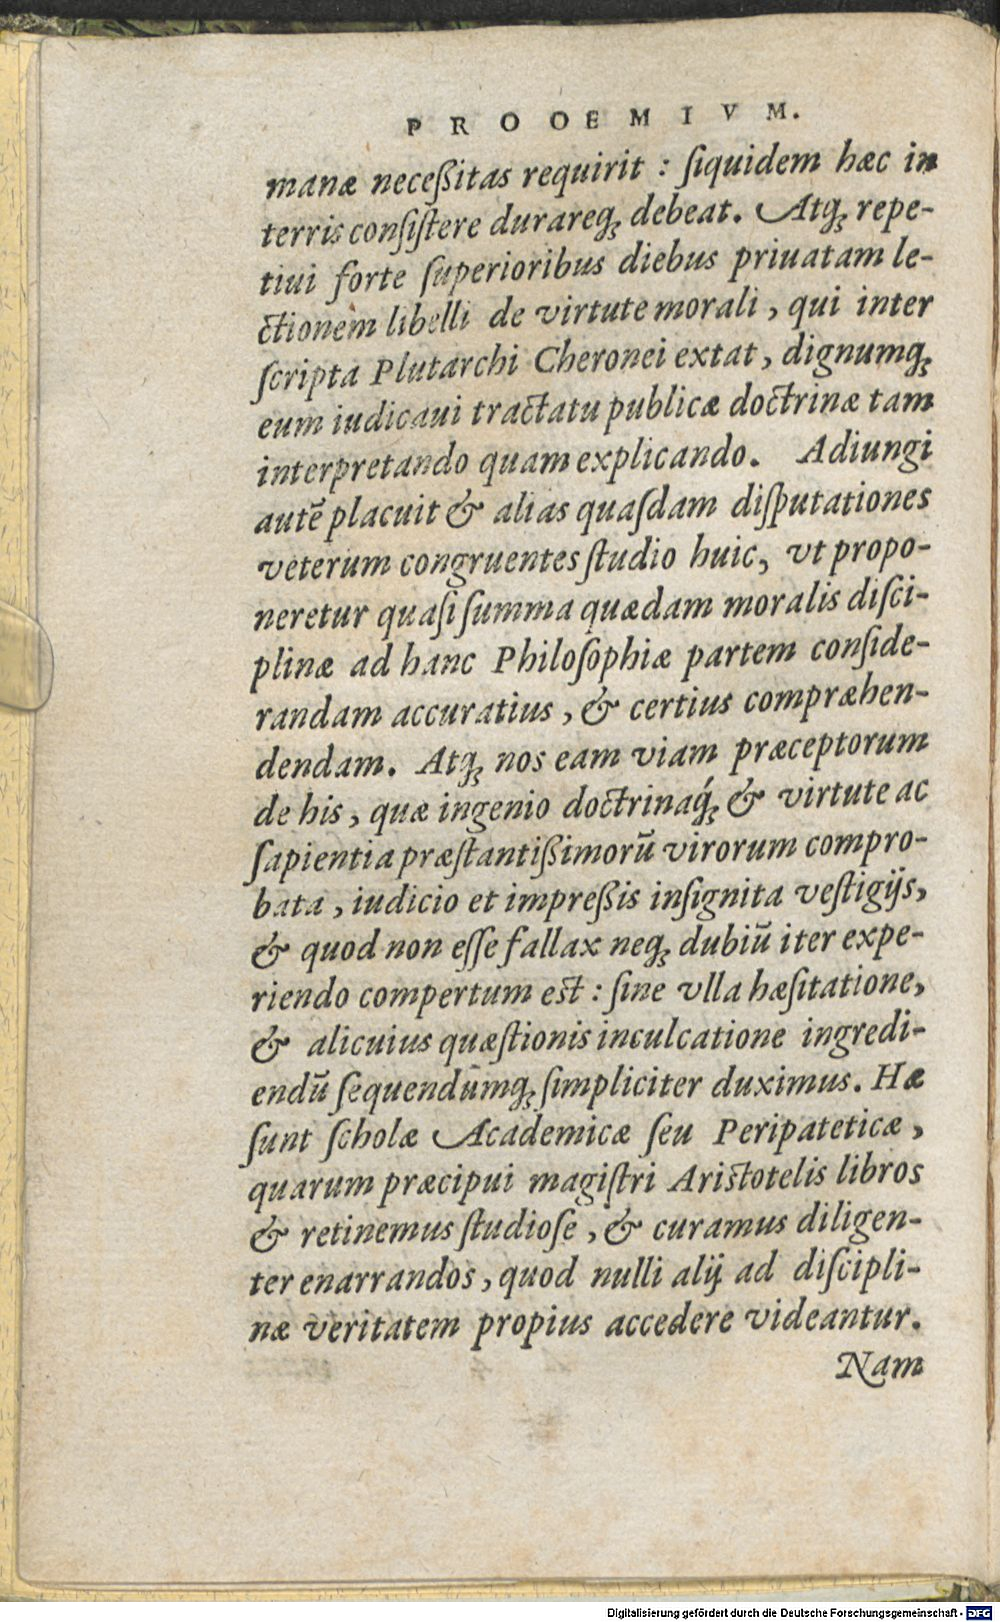 PROOEMIVM.
manæ neceßitas requirit : ſiquidem hæc in
terris conſiſtere durareq́ꝫ debeat. Atqꝫ repe-
tiui forte ſuperioribus diebus priuatam le-
ctionem libelli de virtute morali, qui inter
ſcripta Plutarchi Cheronei extat, dignumqꝫ
eum iudicaui tractatu publicæ doctrinæ tam
interpretando quam explicando. Adiungi
autẽ placuit & alias quaſdam diſputationes
veterum congruentes ſtudio huic, vt propo-
neretur quaſi ſumma quædam moralis diſci-
plinæ ad hanc Philoſophiæ partem conſide-
randam accuratius, & certius compræhen-
dendam. Atqꝫ nos eam viam præceptorum
de his, quæ ingenio doctrinaq́ꝫ & virtute ac
ſapientia præſtantißimorũ virorum compro-
bata, iudicio et impreßis inſignita veſtigijs,
& quod non eſſe fallax neqꝫ dubiũ iter expe-
riendo compertum est : ſine vlla hæſitatione,
& alicuius quæſtionis inculcatione ingredi-
endũ ſequendumqꝫ ſimpliciter duximus. Hæ
ſunt ſcholæ Academicæ ſeu Peripateticæ,
quarum præcipui magiſtri Aristotelis libros
& retinemus ſtudioſe, & curamus diligen-
ter enarrandos, quod nulli alij ad diſcipli-
næ veritatem propius accedere videantur.
Nam
Digitalisierung gefördert durch die Deutsche Forschungsgemeinschaft - DFG